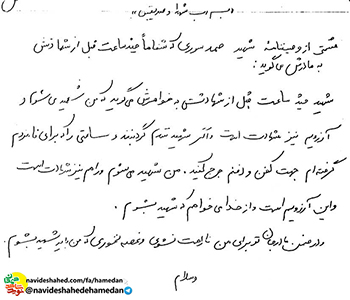 «بسم رب شهدا و صدیقین»
متنی از وصیتنامه شهید صمد سوری که شناساً چند ساعت قبل از شهادتش
به مادرش می گوید:
شهید چند ساعت قبل از شهادتش به خواهرش می گوید که من شهید می شوم و
آرزویم نیز شهادت است و اگر شهید شدم گردنبند و ساعتی را که برای نامزدم
گرفته ام جهت کفن و دفنم خرج کنید. من شهید می شوم و راهم نیز شهادت است
و این آرزویم است و از خدا می خواهم که شهید بشوم.
و در ضمن مادرجان تو برای من ناراحت نشوی و غصه نخوری که من باید شهید بشوم.
والسلام
navideshahed.com/fa/hamedan
@navideshahedehamedan